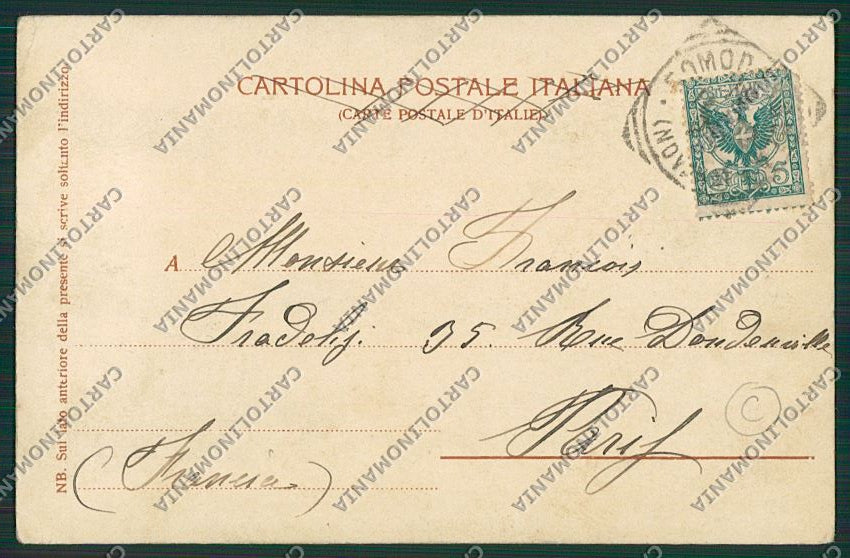 CARTOLINA POSTALE ITALIANA
(CARTE POSTALE D'ITALIE)
NB. Sul lato anteriore della presente si scrive soltanto l'indirizzo.
5
A Monsieur François
35. Rue Doudeauville
Paris
(Francia)
C
CARTOLINOMANIA